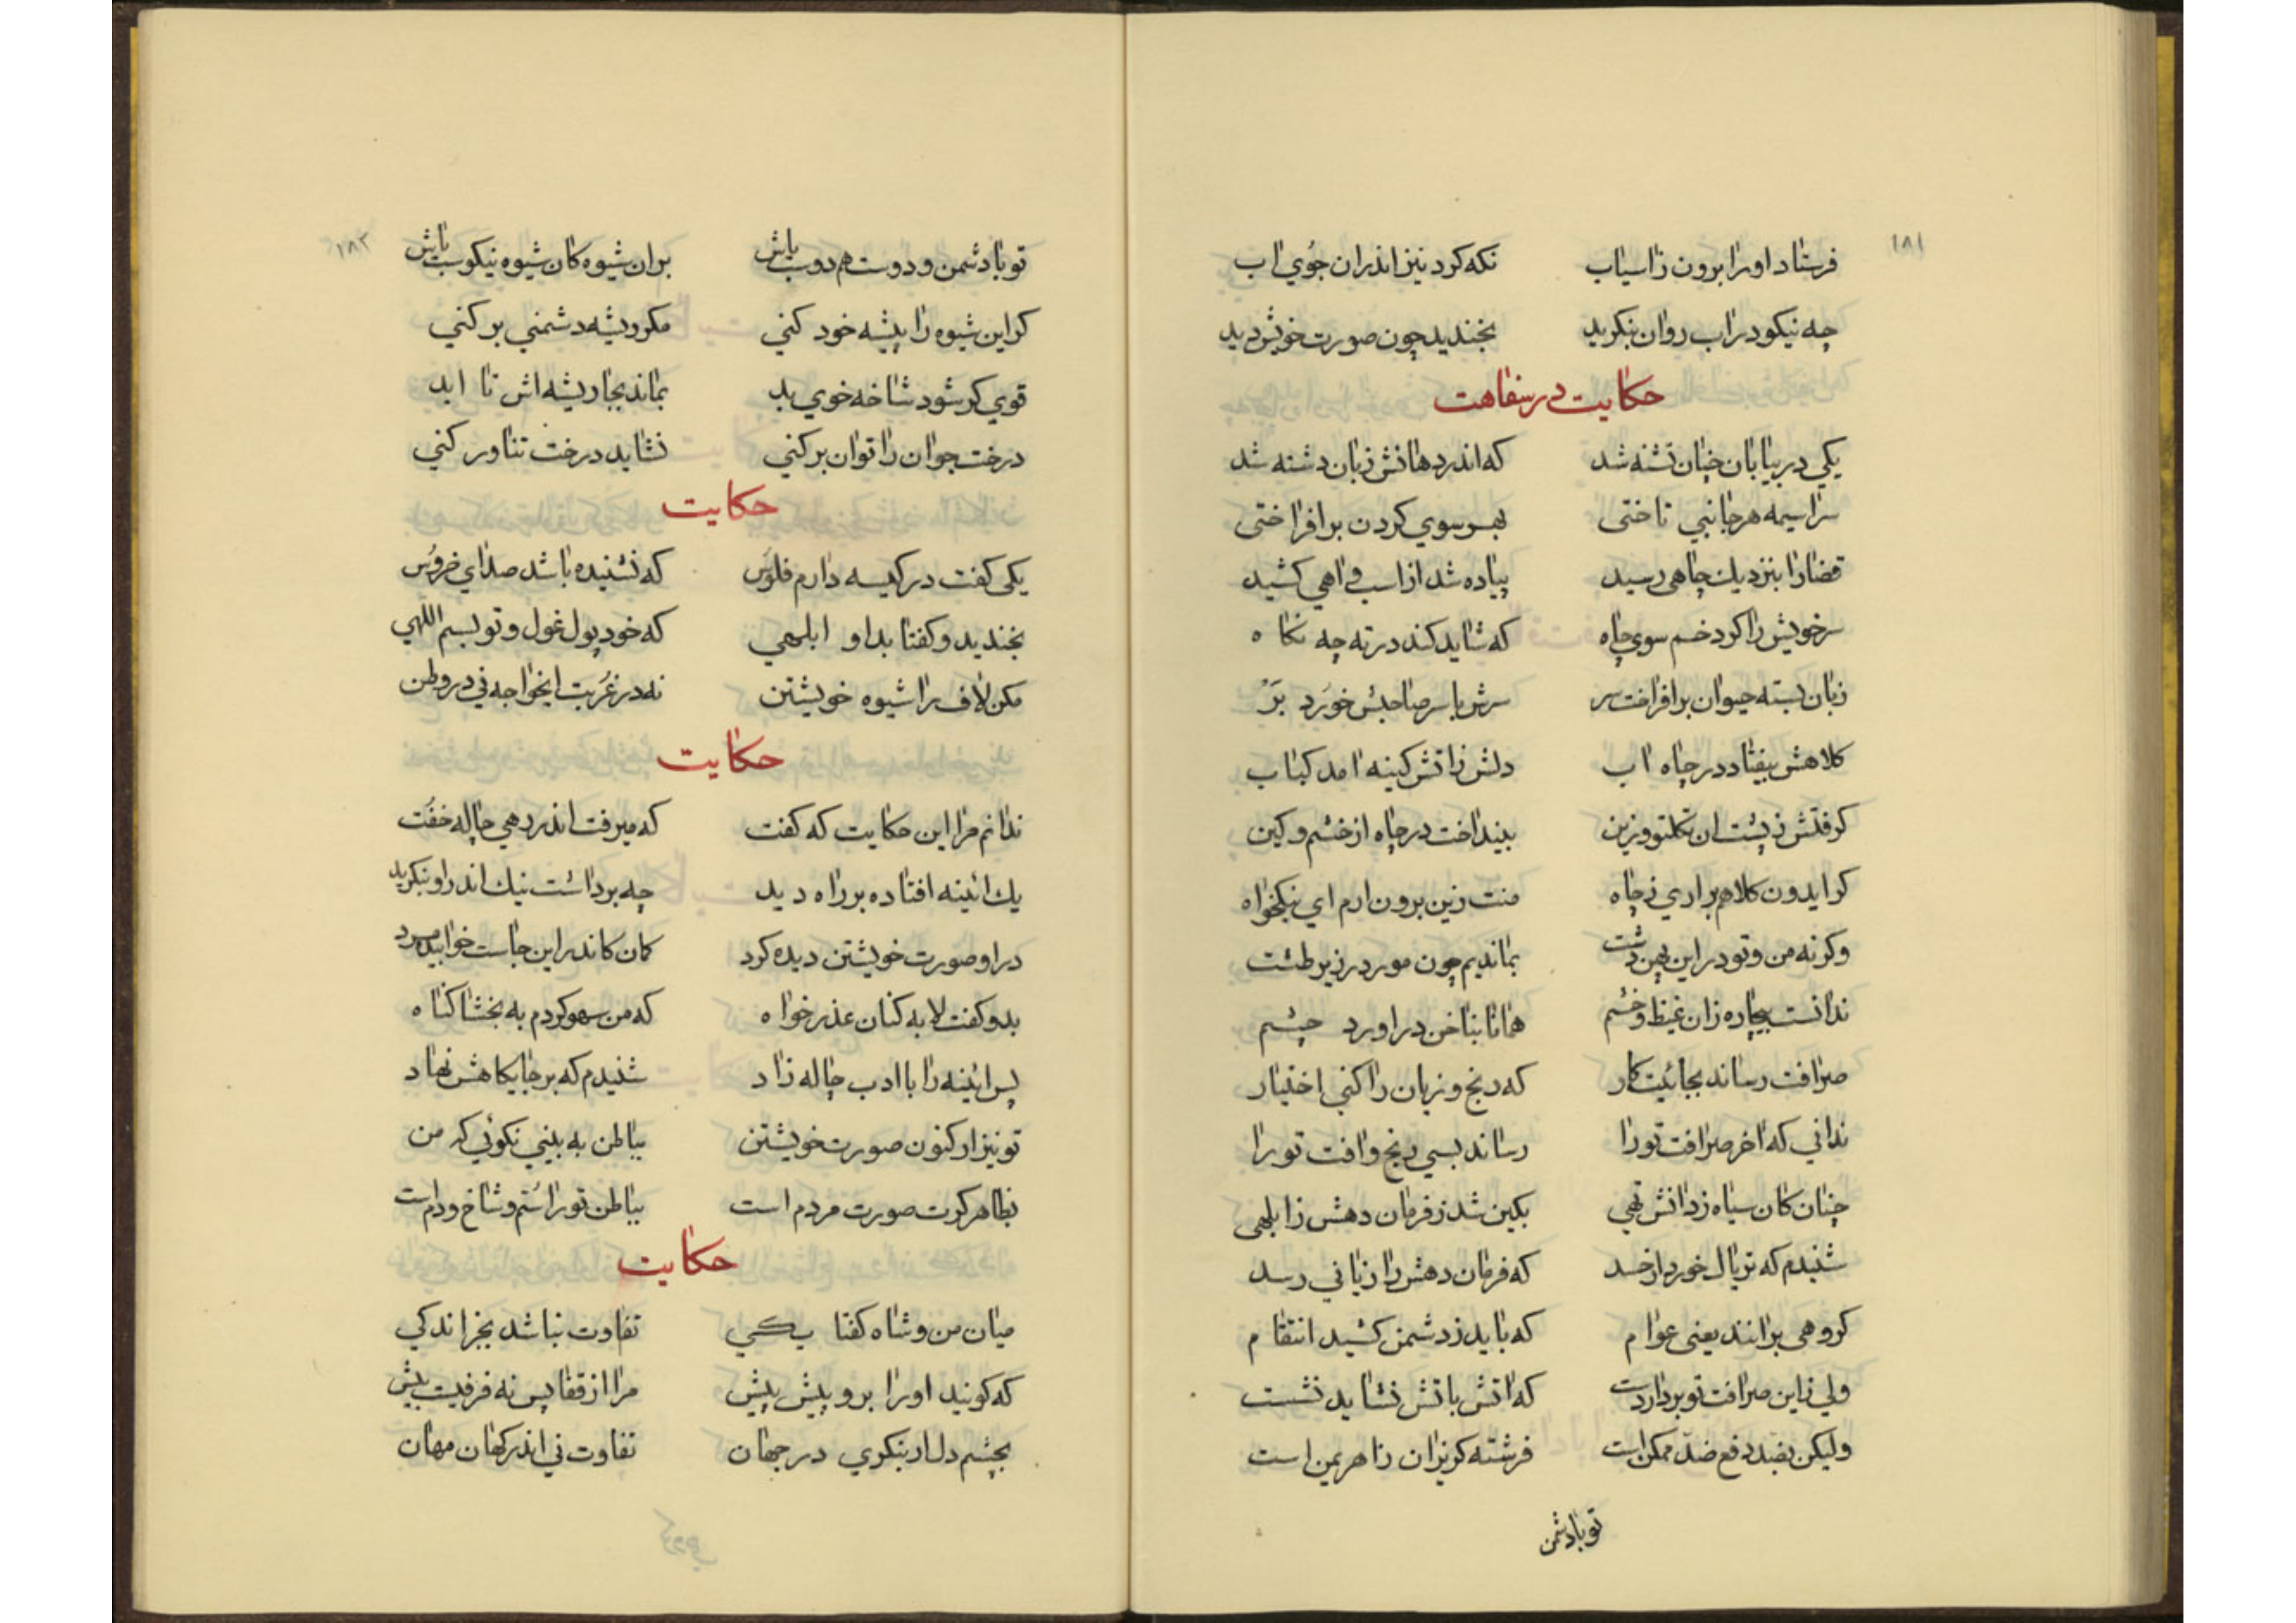 ۱۸۱
فرستاد او را برون ز اسیاب نکه کرد نیز اندران جوُی اب
چه نیکو در اب روان بنکرید بخندید چون صورت خویش دید
حکایت در سفاهت
یکی در بیابان چنان تشنه شد که اندر دهانش زبان دشنه شد
سراسیمه هر جانبی تاختی بهر سوی کردن بر افراختی
قضا را بنزدیك چاهی رسید پیاده شد از اسب و اهی کشید
سر خویش را کرد خم سوی چاه که شاید کند در ته چه نکاه
زبان بسته حیوان بر افراخت سر سرش با سر صاحبش خوَرد بَرْ
کلاهش بیفتاد در چاه اب دلش ز اتش کینه امد کباب
کرفتش ز پشت ان تکلتو و زین بینداخت در چاه از خشم و کین
کر ایدون کلاهم بر اری ز چاه منت زین برون ارم ای نیکخواه
وکرنه من و تو در این پهن دشت بماندیم چون مور در زیر طشت
ندانست بیچاره زان غیظ و خشم همانا بناخن در اورد چشم
صرافت رساند بجائیت کار که رنج و زیان را کنی اختیار
ندانی که اخر صرافت تو را رساند بسی رنج و افت تو را
چنان کان سیاه ز دانش تهی بکین شد ز فرمان دهش ز ابلهی
شنیدم که تریاك خورد از حسد که فرمان دهش را زیانی رسد
کروهی برانند یعنی عوام که باید ز دشمن کشید انتقام
ولی ز این صرافت تو بردار دست که اتش باتش نشاید نشست
ولیکن بضد دفع ضدّ ممکن است فرشته کریزان ز اهریمن است
تو با دشمن
۱۸۲
تو با دشمن و دوست هم دوست باش بران شیوه کان شیوه نیکوست باش
کر این شیوه را پیشه خود کنی مکر ریشه دشمنی بر کنی
قوی کر شود شاخه خوی بد بماند بجا ریشه اش تا ابد
درخت جوان را توان بر کنی نشاید درخت تناور کنی
حکایت
یکی کفت در کیسه دارم فلوَس که نشنیده باشد صدای خروُس
بخندید و کفتا بد او ابلهی که خود پول غول و تو بسم اللهی
مکن لاف را شیوه خویشتن نه در غُربت ایخواجه نی در وطن
حکایت
ندانم مرا این حکایت که کفت که میرفت اندر دهی چاله خُفت
یك ائینه افتاده بر راه دید چه برداشت نیك اندر او بنکرید
در او صورت خویشتن دیده کرد کمان کاندر این جاست خوابیده مرد
بدو کفت لابه کنان عذر خواه که من سهو کردم به بخشا کناه
پس ائینه را با ادب چاله زاد شنیدم که بر جایکاهش نهاد
تو نیز ار کنون صورت خویشتن بباطن به بینی نکوئی که من
بظاهر کرت صورت مردم است بباطن تو را سُم و شاخ و دم است
حکایت
میان من و شاه کفتا یکی تفاوت نباشد بجز اندکی
که کویند او را برو پیش پیش مرا از قفا پس نه فرقیست بیش
بچشم دل ار بنکری در جهان تفاوت نی اندر کهان مهان